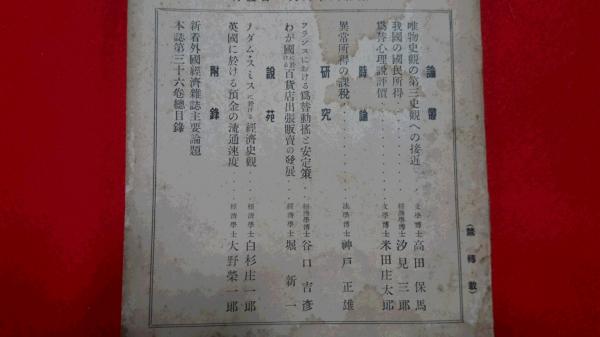 (禁轉載)
論叢
唯物史観の第三史観への接近 文學博士 高田保馬
我國の國民所得 經濟學博士 汐見三郎
爲替心理説評價 文學博士 米田庄太郎
時論
異常所得の課税 法學博士 神戸正雄
研究
フランスにおける爲替動搖と安定策 經濟學博士 谷口吉彦
わが國に於ける百貨店出張販賣の發展 經濟學士 堀新一
説苑
アダム・スミスに於ける經濟史觀 經濟學士 白杉庄一郎
英國に於ける預金の流通速度 經濟學士 大野榮一郎
附錄
新着外國經濟雜誌主要論題
本誌第三十六卷總目錄